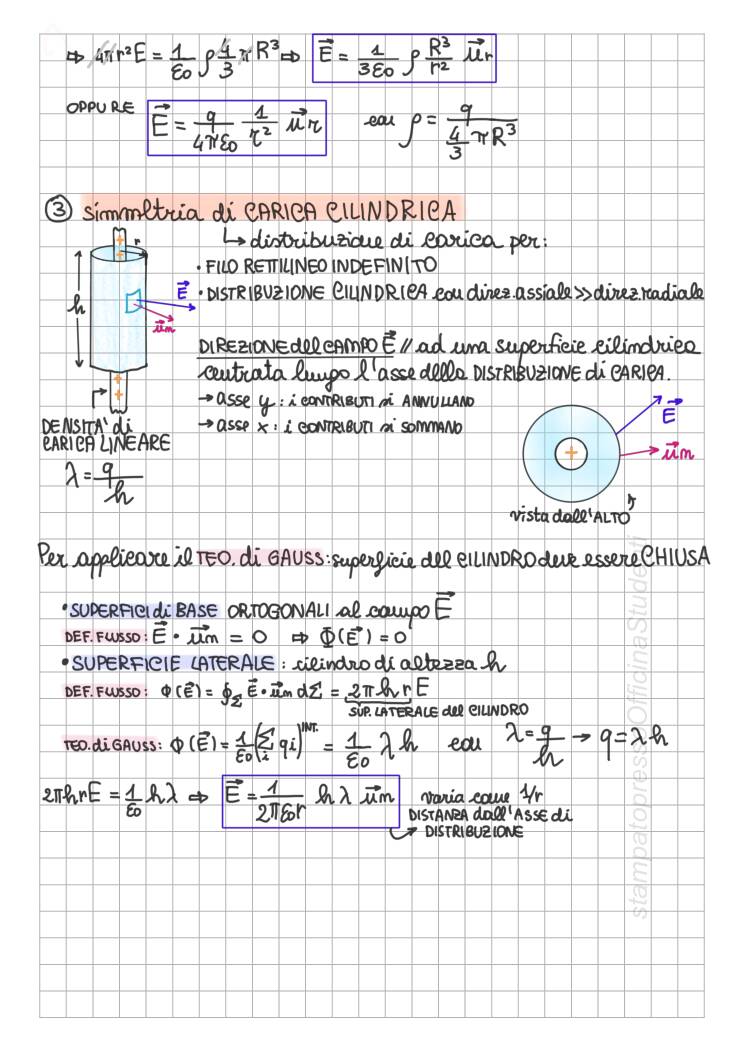 ⇒ 4πr²E = 1/ε₀ ρ 4/3 π R³ ⇒ E⃗ = 1/3ε₀ ρ R³/r² u⃗r
OPPURE E⃗ = q/4πε₀ 1/r² u⃗r con ρ = q/(4/3 πR³)
③ simmetria di CARICA CILINDRICA
↳ distribuzione di carica per:
• FILO RETTILINEO INDEFINITO
• DISTRIBUZIONE CILINDRICA con direz. assiale >> direz. radiale
r
h
E⃗
u⃗n
DIREZIONE del CAMPO E⃗ // ad una superficie cilindrica
centrata lungo l'asse della DISTRIBUZIONE di CARICA.
→ asse y : i CONTRIBUTI si ANNULLANO
→ asse x : i CONTRIBUTI si SOMMANO
DENSITA' di
CARICA LINEARE
λ = q/h
E⃗
u⃗n
vista dall'ALTO
Per applicare il TEO. di GAUSS: superficie del CILINDRO deve essere CHIUSA
• SUPERFICI di BASE ORTOGONALI al campo E⃗
DEF. FLUSSO: E⃗ • u⃗n = 0 ⇒ Φ(E⃗) = 0
• SUPERFICIE LATERALE : cilindro di altezza h
DEF. FLUSSO: Φ(E⃗) = ∮Σ E⃗ • u⃗n dΣ = 2πhrE
SUP. LATERALE del CILINDRO
TEO. di GAUSS: Φ(E⃗) = 1/ε₀ (Σi qi)INT. = 1/ε₀ λh con λ = q/h → q = λh
2πhrE = 1/ε₀ hλ ⇒ E⃗ = 1/2πε₀r hλ u⃗n varia come 1/r
DISTANZA dall'ASSE di
DISTRIBUZIONE
stampatopressoOfficinaStudenti